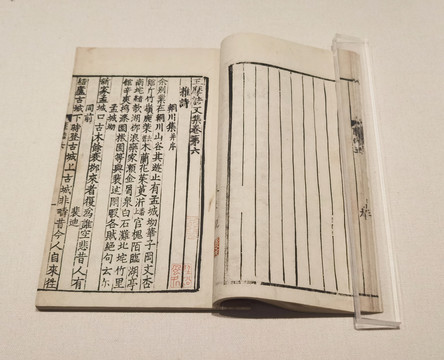 王摩詰文集卷第六
雜詩
輞川集并序
余別業在輞川山谷其遊止有孟城坳華子岡文杏
館斤竹嶺鹿柴木蘭柴茱萸沜宮槐陌臨湖亭
南垞欹湖柳浪欒家瀨金屑泉白石灘北垞竹里
館辛夷塢漆園椒園等與裴迪閑暇各賦絕句云尒
孟城坳
新家孟城口古木餘衰柳來者復為誰空悲昔人有
同前 裴迪
結廬古城下時登古城上古城非疇昔今人自來往